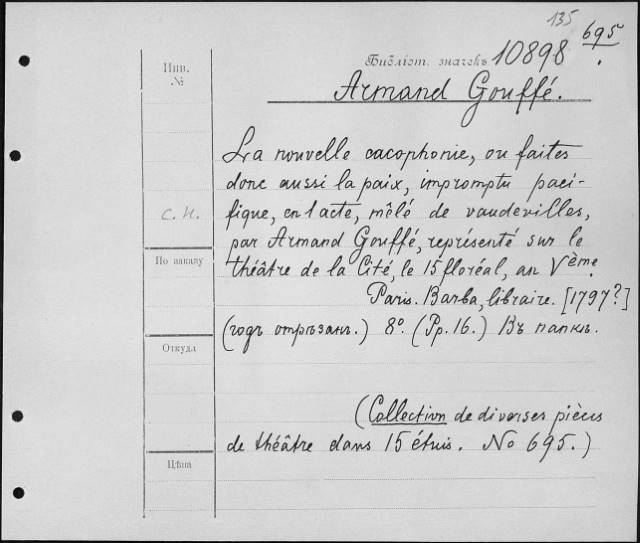 135
695.
Библіот. значекъ 10898
Инв.
№
Armand Gouffé.
La nouvelle cacophonie, ou faites
donc aussi la paix, impromptu paci-
fique, en 1 acte, mêlé de vaudevilles,
С. Н.
par Armand Gouffé, représenté sur le
По заказу
théâtre de la Cité, le 15 floréal, an Vème.
Paris. Barba, libraire. [1797?]
(годъ отрѣзанъ.) 8º. (Pp. 16.) Въ папкѣ.
Откуда
(Collection de diverses pièces
de théâtre dans 15 étuis. No 695.)
Цѣна